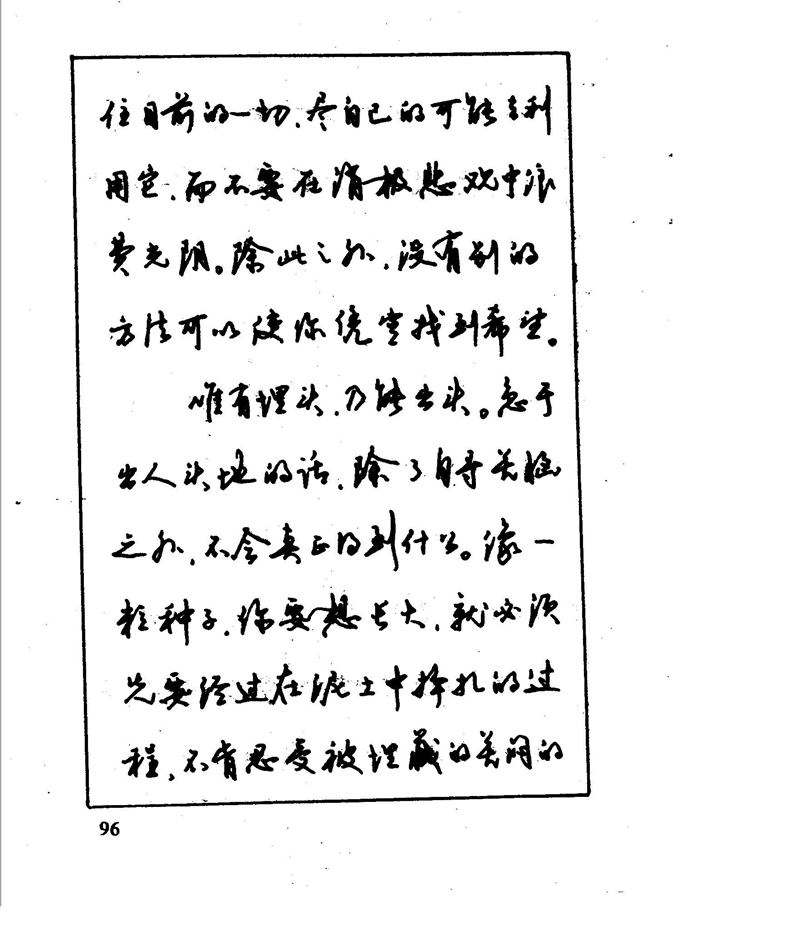 住目前的一切,尽自己的可能去利
用它,而不要在消极悲观中浪
费光阴。除此之外,没有别的
方法可以使你侥幸找到希望。
唯有埋头,乃能出头。急于
出人头地的话,除了自寻苦恼
之外,不会真正的到什么。像一
粒种子,你要想长大,就必须
先要经过在泥土中挣扎的过
程,不肯忍受被埋藏的苦闷的
96